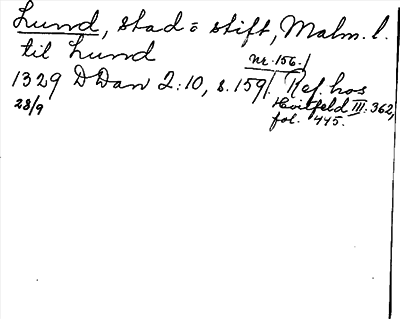 Lund, stad = stift, Malm. l.
til Lund
nr. 156.
1329 DDan 2:10, s. 159. Ref. hos
28/9 Hvitfeld III: 362,
fol. 445.